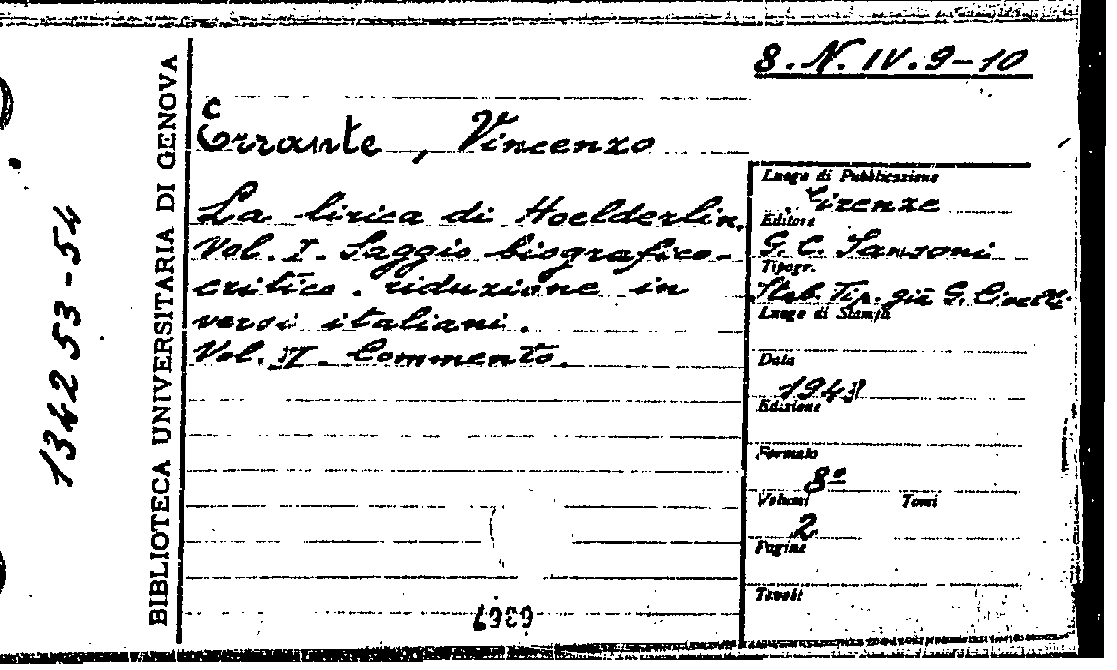 8. N. IV. 9-10
Errante, Vincenzo
La lirica di Hoelderlin.
Vol. I. Saggio biografico-
critico. riduzione in
versi italiani.
Vol. II. Commento.
BIBLIOTECA UNIVERSITARIA DI GENOVA
134253-54
Luogo di Pubblicazione
Firenze
Editore
G. C. Sansoni
Tipogr.
Stab. Tip. già G. Civelli
Luogo di Stampa
Data
1943
Edizione
Formato
8º
Volumi Tomi
2
Pagine
Tavole
6367